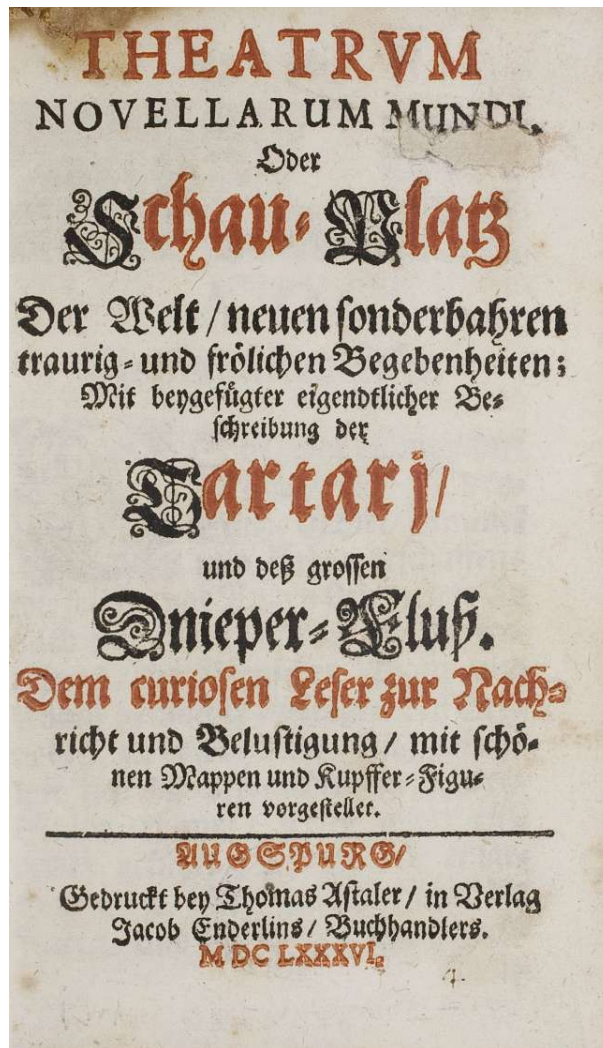 THEATRVM
NOVELLARUM MUNDI.
Oder
Schau-Platz
Der Welt / neuen sonderbahren
traurig- und frölichen Begebenheiten;
Mit beygefügter eigendtlicher Be-
schreibung der
Tartarj /
und deß grossen
Dnieper-Fluß.
Dem curiosen Leser zur Nach-
richt und Belustigung / mit schö-
nen Mappen und Kupffer-Figu-
ren vorgestellet.
AUGSPURG /
Gedruckt bey Thomas Astaler / in Verlag
Jacob Enderlins / Buchhandlers.
M DC LXXXVI.